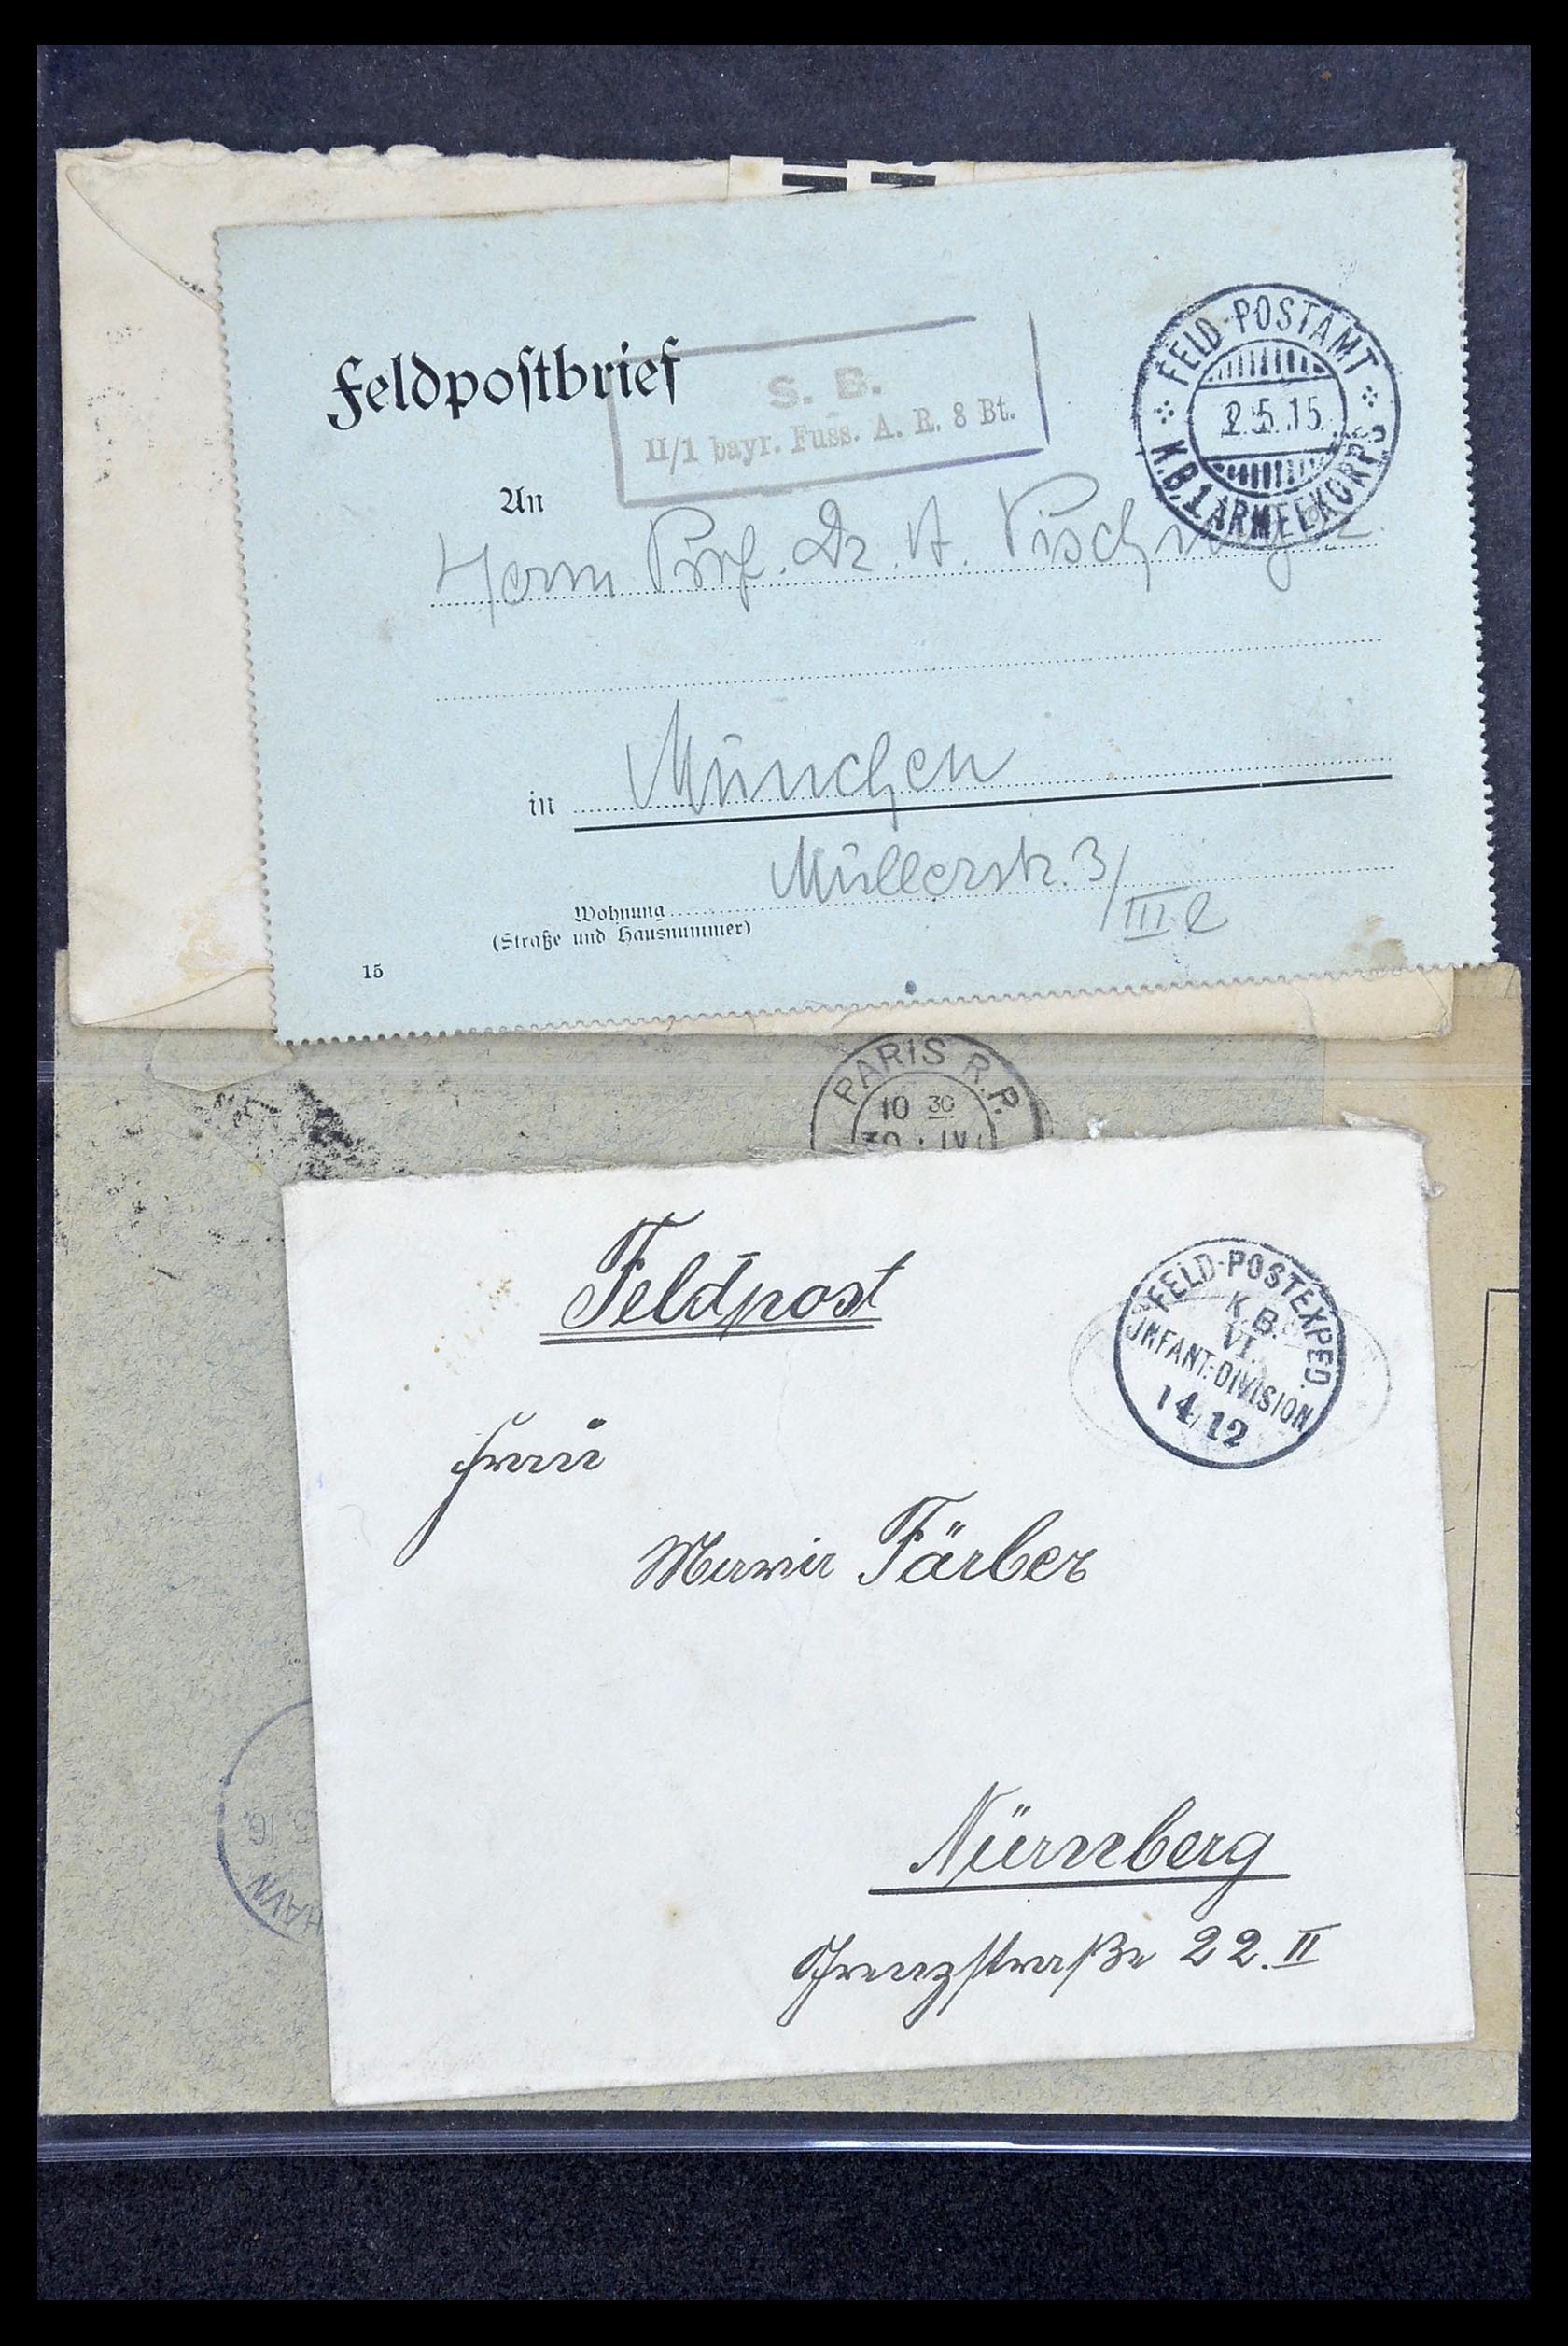 Feldpostbrief
S. B.
II/1 bayr. Fuss. A. R. 8 Bt.
FELD-POSTAMT
2.5.15.
K.B.1 ARMEEKORPS
An
Herrn Prof. Dr. A.
in München
Müllerstr. 3/
III l
Wohnung
(Straße und Hausnummer)
15
PARIS R.P.
10 30
30 · IV
Feldpost
FELD-POSTEXPED.
K.B.
VI.
INFANT.-DIVISION
14/12
Frau
Maria Färber
Nürnberg
Grenzstraße 22. II
5. 16.
HAVN